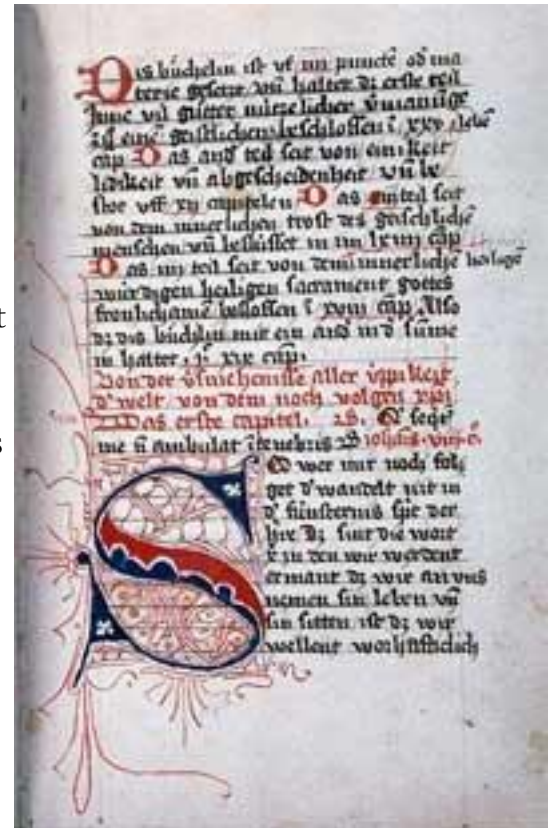 Dis büchelin ist vf iiij puncte od ma
terie gesetze vñ haltet dz erste teil
jnne vil gůtter nützlicher v̓manũge
zů eine geistlichen beschlossen ī xxv lebē
cap Das and̓ teil seit von einikeit
vñ abgescheidenheit vñ be
vff xij capitelen Das iij teil seit
von dem innerlichen trost des geischlichē
menschen vñ in im lxiiij cap
Das iiij teil seit von dem innerlichē heiligē
wirdigen heiligen sacrament gottes
fronlichame beslossen ī xviij cap Also
dz dis büchlin mit ein and̓ in d̓ sũme
in haltet cap
von der v̓smehenisse aller ÿppikeit
d̓ welt von dem noch volgen xxv
Das erste capitel. Q̇ seqt̓
me nō ambulat ī tenebris Joh̓is viij c̄
SO wer mir noch fol
get d̓ wandelt nit in
d̓ finsternis spt der
hre Dz sint die wort
x̄ in den wir werdent
ermant dz wir an vns
nemen sin leben vñ
sin sitten ist dz wir
wellent worhaffticlich
t
s